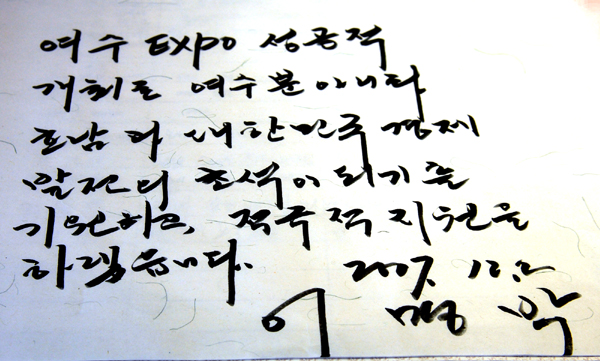 여수 EXPO 성공적
개최로 여수뿐 아니라
호남과 대한민국 경제
발전의 초석이 되기를
기원하며, 적극적 지원을
하겠습니다.
2007. 12. 2
이명박